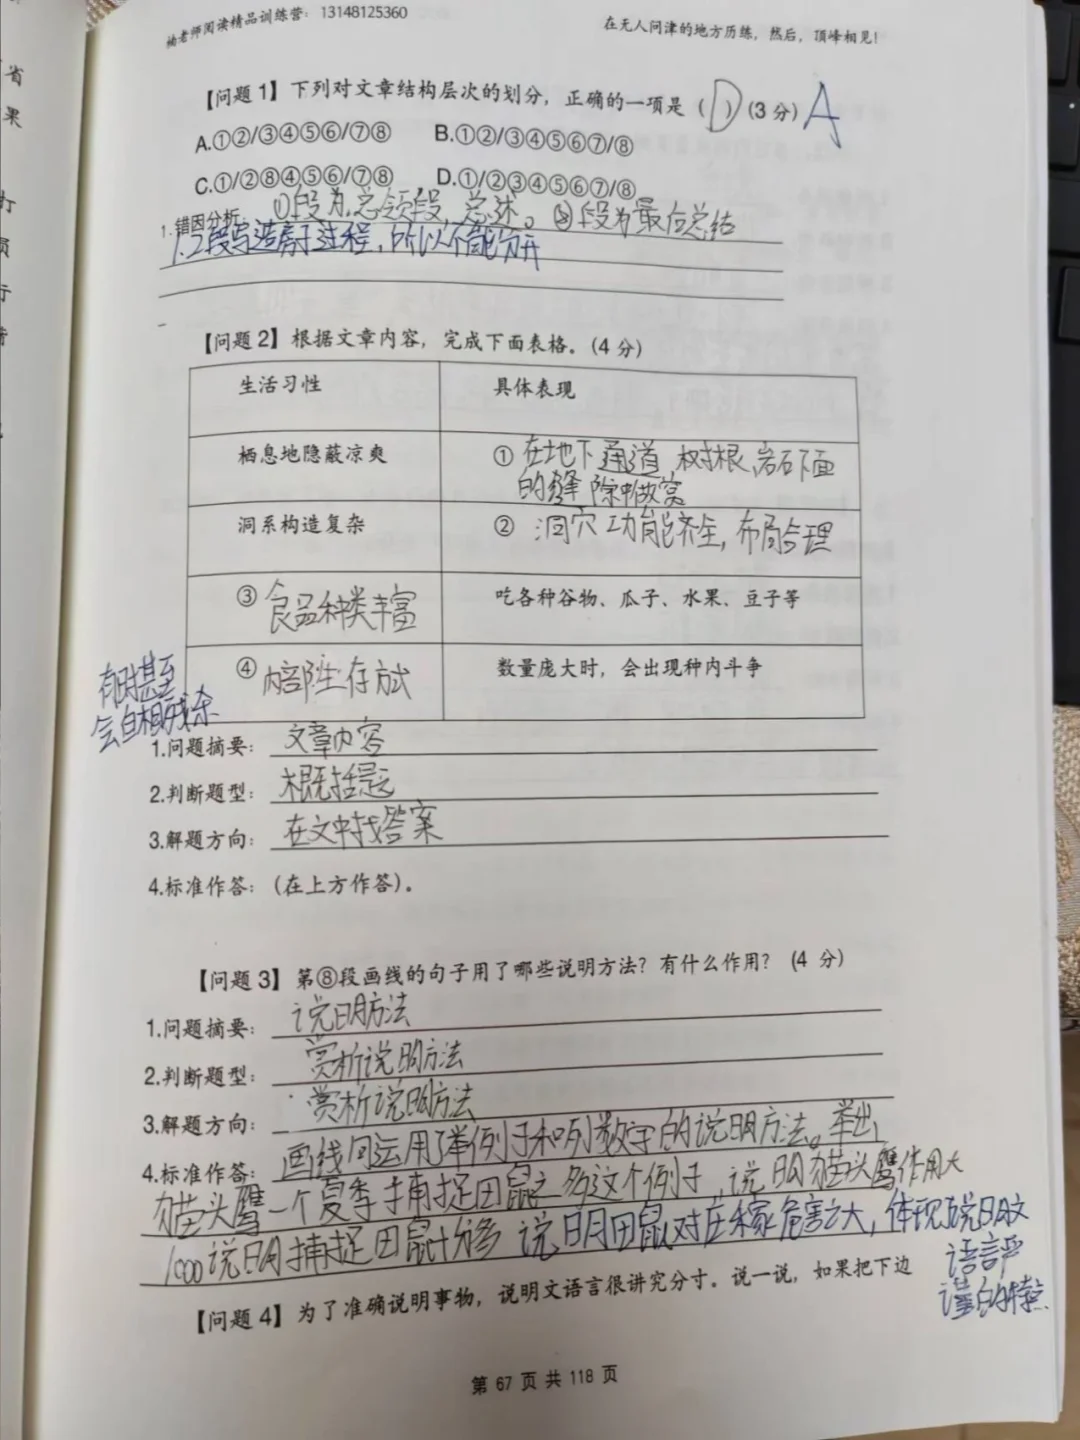 省
果
打
员
行
柚老师阅读精品训练营：13148125360
在无人问津的地方历练，然后，顶峰相见！
【问题1】下列对文章结构层次的划分，正确的一项是（D）(3分) A
A.①②/③④⑤⑥/⑦⑧ B.①②/③④⑤⑥⑦/⑧
C.①/②⑧④⑤⑥/⑦⑧ D.①/②③④⑤⑥⑦/⑧
1.错因分析：①段为总领段，总述。⑧段为最后总结
1.2段写造房子过程，所以不能分开
【问题2】根据文章内容，完成下面表格。(4分)
生活习性 具体表现
栖息地隐蔽凉爽 ①在地下通道、树根、岩石下面
的缝隙中做窝
洞系构造复杂 ②洞穴功能齐全，布局合理
③食品种类丰富 吃各种谷物、瓜子、水果、豆子等
④内部生存方式 数量庞大时，会出现种内斗争
有时甚至
会自相残杀
1.问题摘要：文章内容
2.判断题型：概括题
3.解题方向：在文中找答案
4.标准作答：（在上方作答）。
【问题3】第⑧段画线的句子用了哪些说明方法？有什么作用？（4 分）
1.问题摘要：说明方法
2.判断题型：赏析说明方法
3.解题方向：赏析说明方法
4.标准作答：画线句运用了举例子和列数字的说明方法。举出
猫头鹰一个夏季捕捉田鼠之多这个例子，说明猫头鹰作用大
1000说明捕捉田鼠 说明田鼠对庄稼危害之大，体现说明文
语言严
谨的特点.
【问题4】为了准确说明事物，说明文语言很讲究分寸。说一说，如果把下边
第 67 页 共 118 页